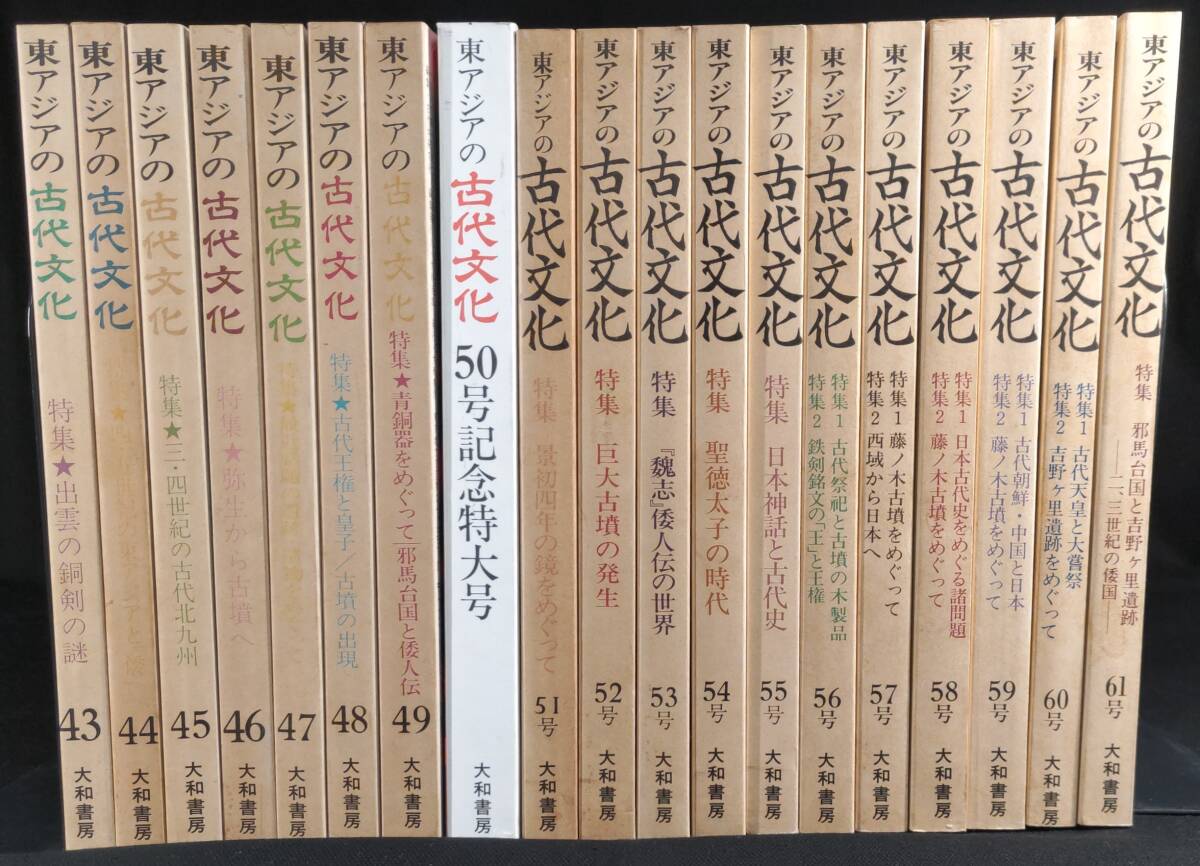 東アジアの古代文化
特集★出雲の銅剣の謎
43
大和書房
東アジアの古代文化
44
大和書房
東アジアの古代文化
特集★三・四世紀の古代北九州
45
大和書房
東アジアの古代文化
特集★弥生から古墳へ
46
大和書房
東アジアの古代文化
47
大和書房
東アジアの古代文化
特集★古代王権と皇子/古墳の出現
48
大和書房
東アジアの古代文化
特集★青銅器をめぐって/邪馬台国と倭人伝
49
大和書房
東アジアの古代文化
50号記念特大号
大和書房
東アジアの古代文化
特集 景初四年の鏡をめぐって
51号
大和書房
東アジアの古代文化
特集 巨大古墳の発生
52号
大和書房
東アジアの古代文化
特集 『魏志』倭人伝の世界
53号
大和書房
東アジアの古代文化
特集 聖徳太子の時代
54号
大和書房
東アジアの古代文化
特集 日本神話と古代史
55号
大和書房
東アジアの古代文化
特集1 古代祭祀と古墳の木製品
特集2 鉄剣銘文の「王」と王権
56号
大和書房
東アジアの古代文化
特集1 藤ノ木古墳をめぐって
特集2 西域から日本へ
57号
大和書房
東アジアの古代文化
特集1 日本古代史をめぐる諸問題
特集2 藤ノ木古墳をめぐって
58号
大和書房
東アジアの古代文化
特集1 古代朝鮮・中国と日本
特集2 藤ノ木古墳をめぐって
59号
大和書房
東アジアの古代文化
特集1 古代天皇と大嘗祭
特集2 吉野ヶ里遺跡をめぐって
60号
大和書房
東アジアの古代文化
特集 邪馬台国と吉野ヶ里遺跡
――二、三世紀の倭国――
61号
大和書房